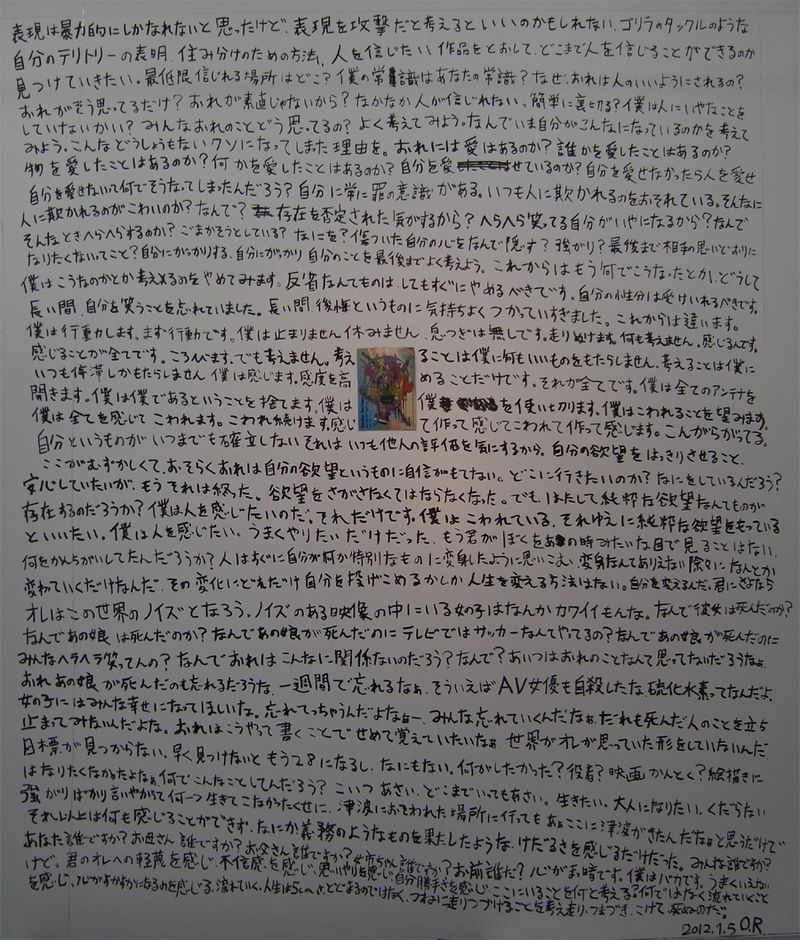 表現は暴力的にしかなれないと思ったけど、表現を攻撃だと考えるといいのかもしれない、ゴリラのタックルのような
自分のテリトリーの表明、住み分けのための方法、人を信じたい 作品をとおして、どこまで人を信じることができるのか
見つけていきたい。最低限信じれる場所はどこ?僕の常識はあなたの常識?なぜ、おれは人のいいようにされるの?
おれがそう思ってるだけ?おれが素直じゃないから?なかなか人が信じれない、簡単に裏切る?僕は人にいやなことを
していなかい?みんなおれのことどう思ってるの?よく考えてみよう。なんでいま自分がこんなになっているのかを考えて
みよう。こんなどうしょうもないクソになってしまた理由を。おれには愛はあるのか?誰かを愛したことはあるのか?
物を愛したことはあるのか?何かを愛したことはあるのか?自分を愛せているのか?自分を愛せなかったら人を愛せ
自分を愛せないって何でそうなってしまったんだろう?自分に常に罪の意識がある。いつも人に欺かれるのをおそれている。そんなに
人に欺かれるのがこわいのか?なんで?存在を否定された気がするから?へらへら笑ってる自分がいやになるから?なんで
そんなときへらへらするのか?ごまかそうとしている?なにを?傷ついた自分の心をなんで隠す?強がり?最後まで相手の思いどおりに
なりたくないってこと?自分にがっかりする、自分にがっかり 自分のことを最後までよく考えよう。これからはもう何でこうなったとか、どうして
僕はこうなのかとか考えるのをやめてみます。反省なんてものは、してもすぐにやめるべきです。自分の性分は受けいれるべきです。
長い間、自分を笑うことを忘れていました。長い間後悔というものに気持ちよくつかっていすぎました。これからは違います。
僕は行動します、まず行動です。僕は止まりません、休みません、息つぎは無しです。走りぬけます。何も考えません。感じるんです。
感じることが全てです。ころびます、でも考えません。考えることは僕に何もいいものをもたらしません、考えることは僕に
いつも停滞しかもたらしません 僕は感じます。感度を高めることだけです。それが全てです。僕は全てのアンテナを
開きます。僕は僕であるということを捨てます。僕は僕を使い切ります。僕はこわれることを望みます。
僕は全てを感じてこわれます。こわれ続けます。感じて作って感じてこわれて作って感じます。こんがらがってる。
自分というものがいつまでも確立しないそれはいつも他人の評価を気にするから。自分の欲望をはっきりさせること、
ここがむずかしくて、おそらくおれは自分の欲望というものに自信がもてない。どこに行きたいのか?なにをしているんだろう?
安心していたいが、もうそれは終った。欲望をさがさなくてはならなくなった。でも、はたして純粋な欲望なんてものが
存在するのだろうか?僕は人を感じたいのだ。それだけです。僕はこわれている、それゆえに純粋な欲望をもっている
といいたい。僕は人を感じたい。うまくやりたいだけだった、もう君がぼくをあの時つめたいな目で見ることはない、
何をかんちがいしてたんだろうか?人はすぐに自分が何か特別なものに変身したように思いこむ、変身なんてありえない徐々になんとか
変わっていくだけなんだ、その変化にどれだけ自分を投げこめるかしか人生を変える方法はない。自分を変えるんだ。君にさよなら
オレはこの世界のノイズとなろう。ノイズのある映像の中にいる女の子はなんかカワイイもんな。なんで彼女は死んだのか?
なんであの娘は死んだのか?なんであの娘が死んだのにテレビではサッカーなんてやってるの?なんであの娘が死んだのに
みんなヘラヘラ笑ってんの?なんでおれはこんなに関係ないのだろう?なんで?あいつはおれのことなんて思ってないだろうなぁ。
おれあの娘が死んだのも忘れるだろうな、一週間で忘れるなぁ、そういえばAV女優も自殺したな、硫化水素ってなんだよ、
女の子にはみんな幸せになってほしいな。忘れてっちゃうんだよなぁー、みんな忘れていくんだなぁ、だれも死んだ人のことを立ち
止まってみないんだよな。おれはこうやって書くことでせめて覚えていたいなぁ 世界がオレが思っていた形をしていないんだ
目標が見つからない、早く見つけないともう28になるし、なにもない。何がしたかった?役者?映画かんとく?絵描きに
はなりたくなかったよなぁ何でこんなことしてんだろう?こいつあさい、どこまでいってもあさい。生きたい。大人になりたい。くだらない
強がりばかり言いやがって何一つ生きてこなかったくせに、津波におそわれた場所に行ってもあぁここに津波がきたんだなぁと思うだけで
それ以上は何も感じることができず、なにか義務のようなものを果たしたような、けだるさを感じるだけだった。みんな誰ですか?
あなた誰ですか?お母さん誰ですか?お父さん誰ですか?女市ちゃん誰ですか?お前誰だ?心がまっ暗です。僕はバカです。うまくいえない
けど。君のオレへの軽蔑を感じ、不信感を感じ、思いやりを感じ、自分勝手さを感じ、ここにいることを何と考える?何ではなく流れていくこと
を感じ、心がすかすかになるのを感じる、流れていく、人生は とどまるのではなく、つねに走りつづけることを考え走り、つまづき、こけて、死ぬのだ。
2012.1.5 O.R